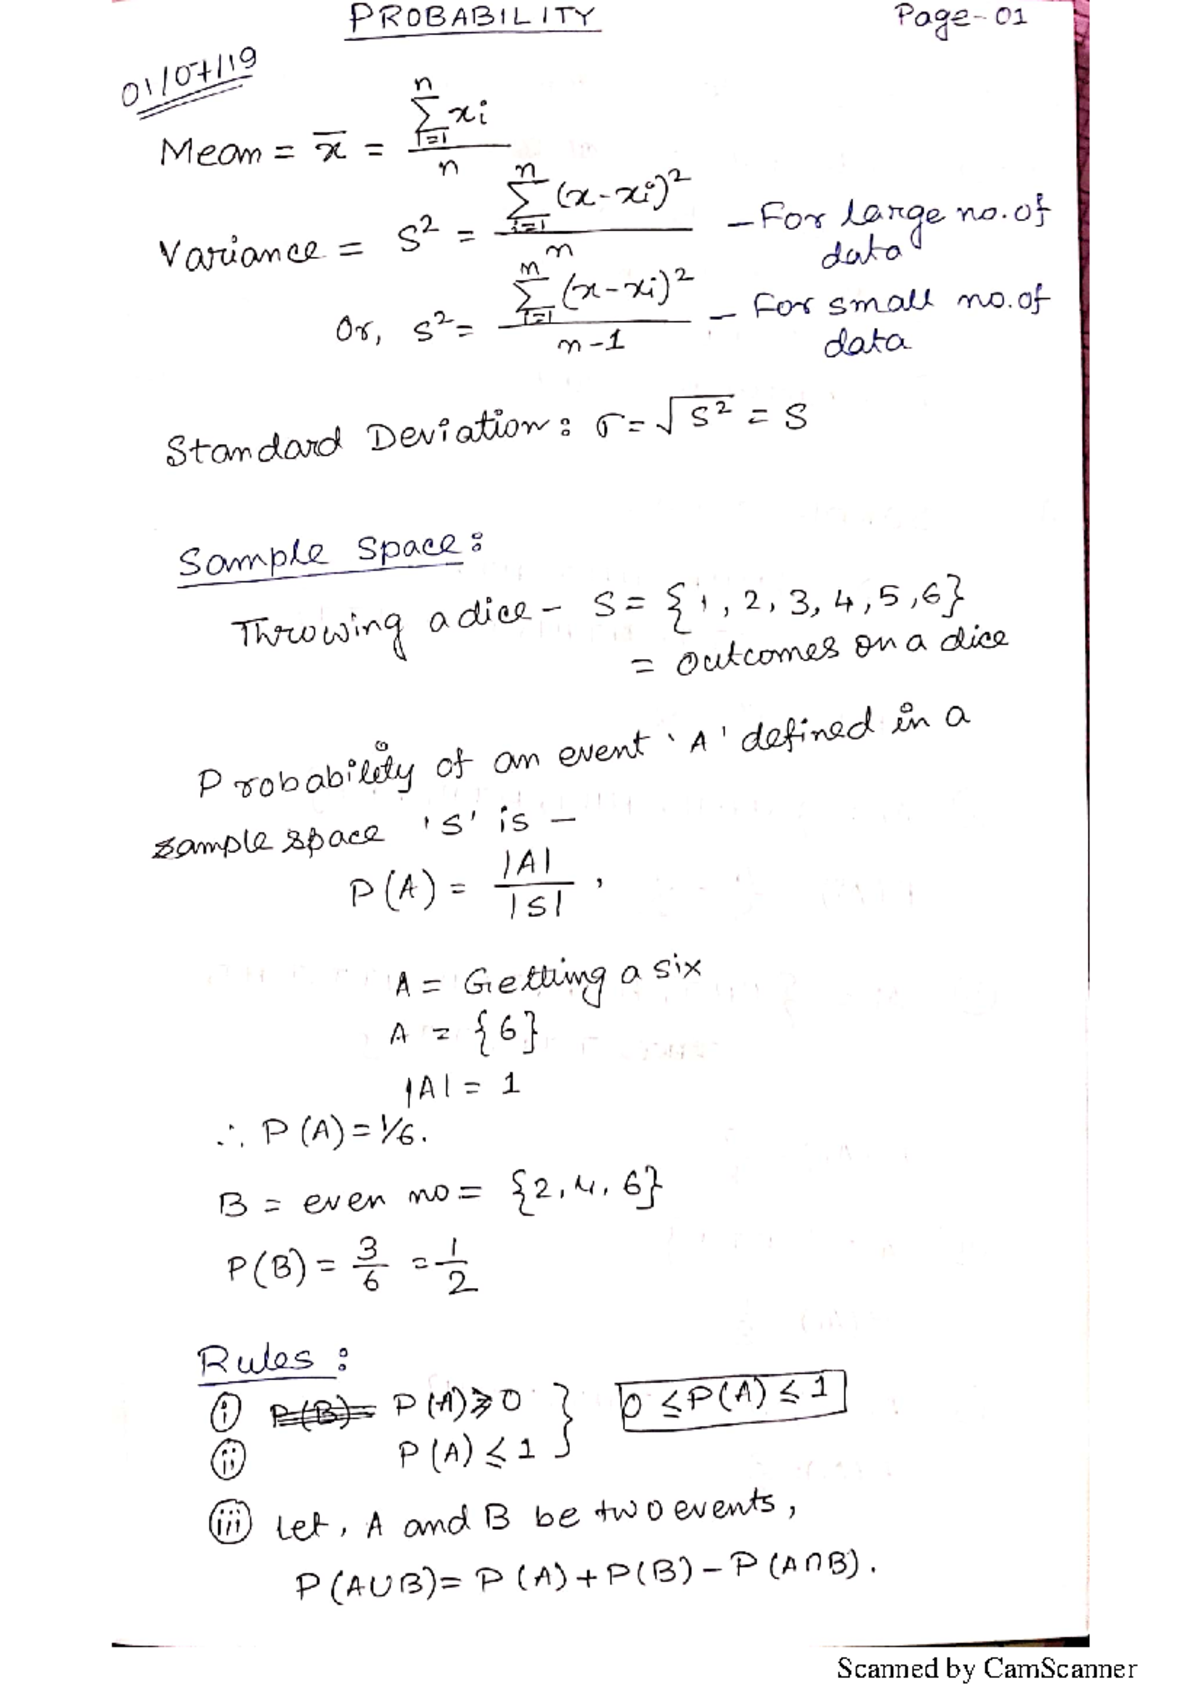 PROBABILITY
Page-01
01/07/19
Mean = x̄ = ∑ⁿᵢ₌₁ xi / n
Variance = S² = ∑ⁿᵢ₌₁ (x-xi)² / n - For large no. of data
Or, S² = ∑ⁿᵢ₌₁ (x-xi)² / n-1 - For small no. of data
Standard Deviation: σ = √S² = S
Sample Space:
Throwing a dice - S = {1, 2, 3, 4, 5, 6}
= outcomes on a dice
Probability of an event 'A' defined in a
sample space 'S' is -
P(A) = |A| / |S| ,
A = Getting a six
A = {6}
|A| = 1
∴ P(A) = 1/6.
B = even no = {2, 4, 6}
P(B) = 3/6 = 1/2
Rules:
(i) P(B)= P(A) ≥ 0 } 0 ≤ P(A) ≤ 1
(ii) P(A) ≤ 1
(iii) Let, A and B be two events,
P(A∪B) = P(A) + P(B) - P(A∩B).
Scanned by CamScanner